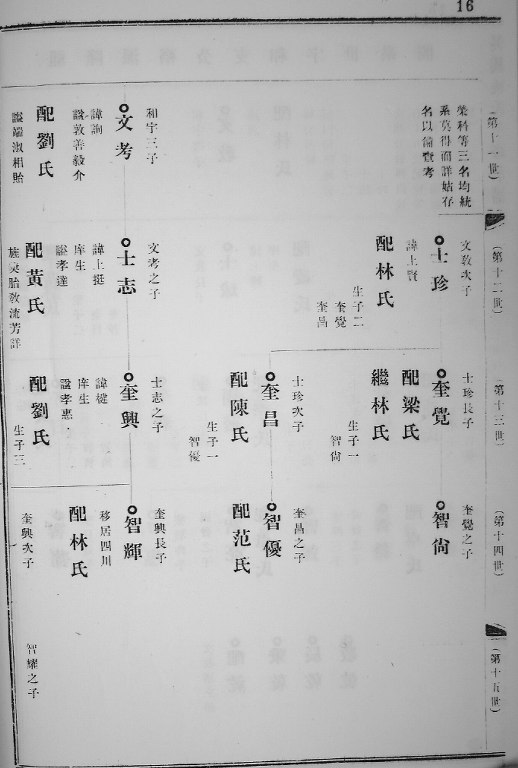 16
(第十一世)
榮科等三名均統
系莫得而詳姑存
名以備登考
和宇三子
文考
諱詢
諡敦善毅介
配劉氏
諡端淑相貽
(第十二世)
文敦次子
士珍
諱上賢
配林氏
生子二
奎覺
奎昌
文考之子
士志
諱上挺
庠生
諡孝達
配黃氏
(第十三世)
士珍長子
奎覺
配梁氏
繼林氏
生子一
智尙
士珍次子
奎昌
配陳氏
生子一
智優
士志之子
奎興
諱健
庠生
諡孝惠
配劉氏
生子三
(第十四世)
奎覺之子
智尙
奎昌之子
智優
配范氏
奎興長子
智輝
移居四川
配林氏
奎興次子
(第十五世)
智耀之子